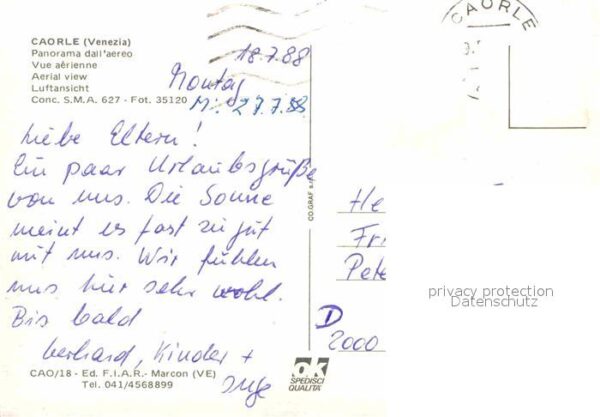 CAORLE (Venezia)
Panorama dall'aereo
Vue aérienne
Aerial view
Luftansicht
Conc. S.M.A. 627 - Fot. 35120
18.7.88
Montag
Mi. 27.7.88
Liebe Eltern!
Ein paar Urlaubsgrüße
von uns. Die Sonne
meint es fast zu gut
mit uns. Wir fühlen
uns hier sehr wohl.
Bis bald
Gerhard, Kinder +
Inge
CAO/18 - Ed. F.I.A.R.- Marcon (VE)
Tel. 041/4568899
CO.GRAF s.r.l.
OK
SPEDISCI
QUALITA'
CAORLE
He
Fri
Pete
D
2000
privacy protection
Datenschutz